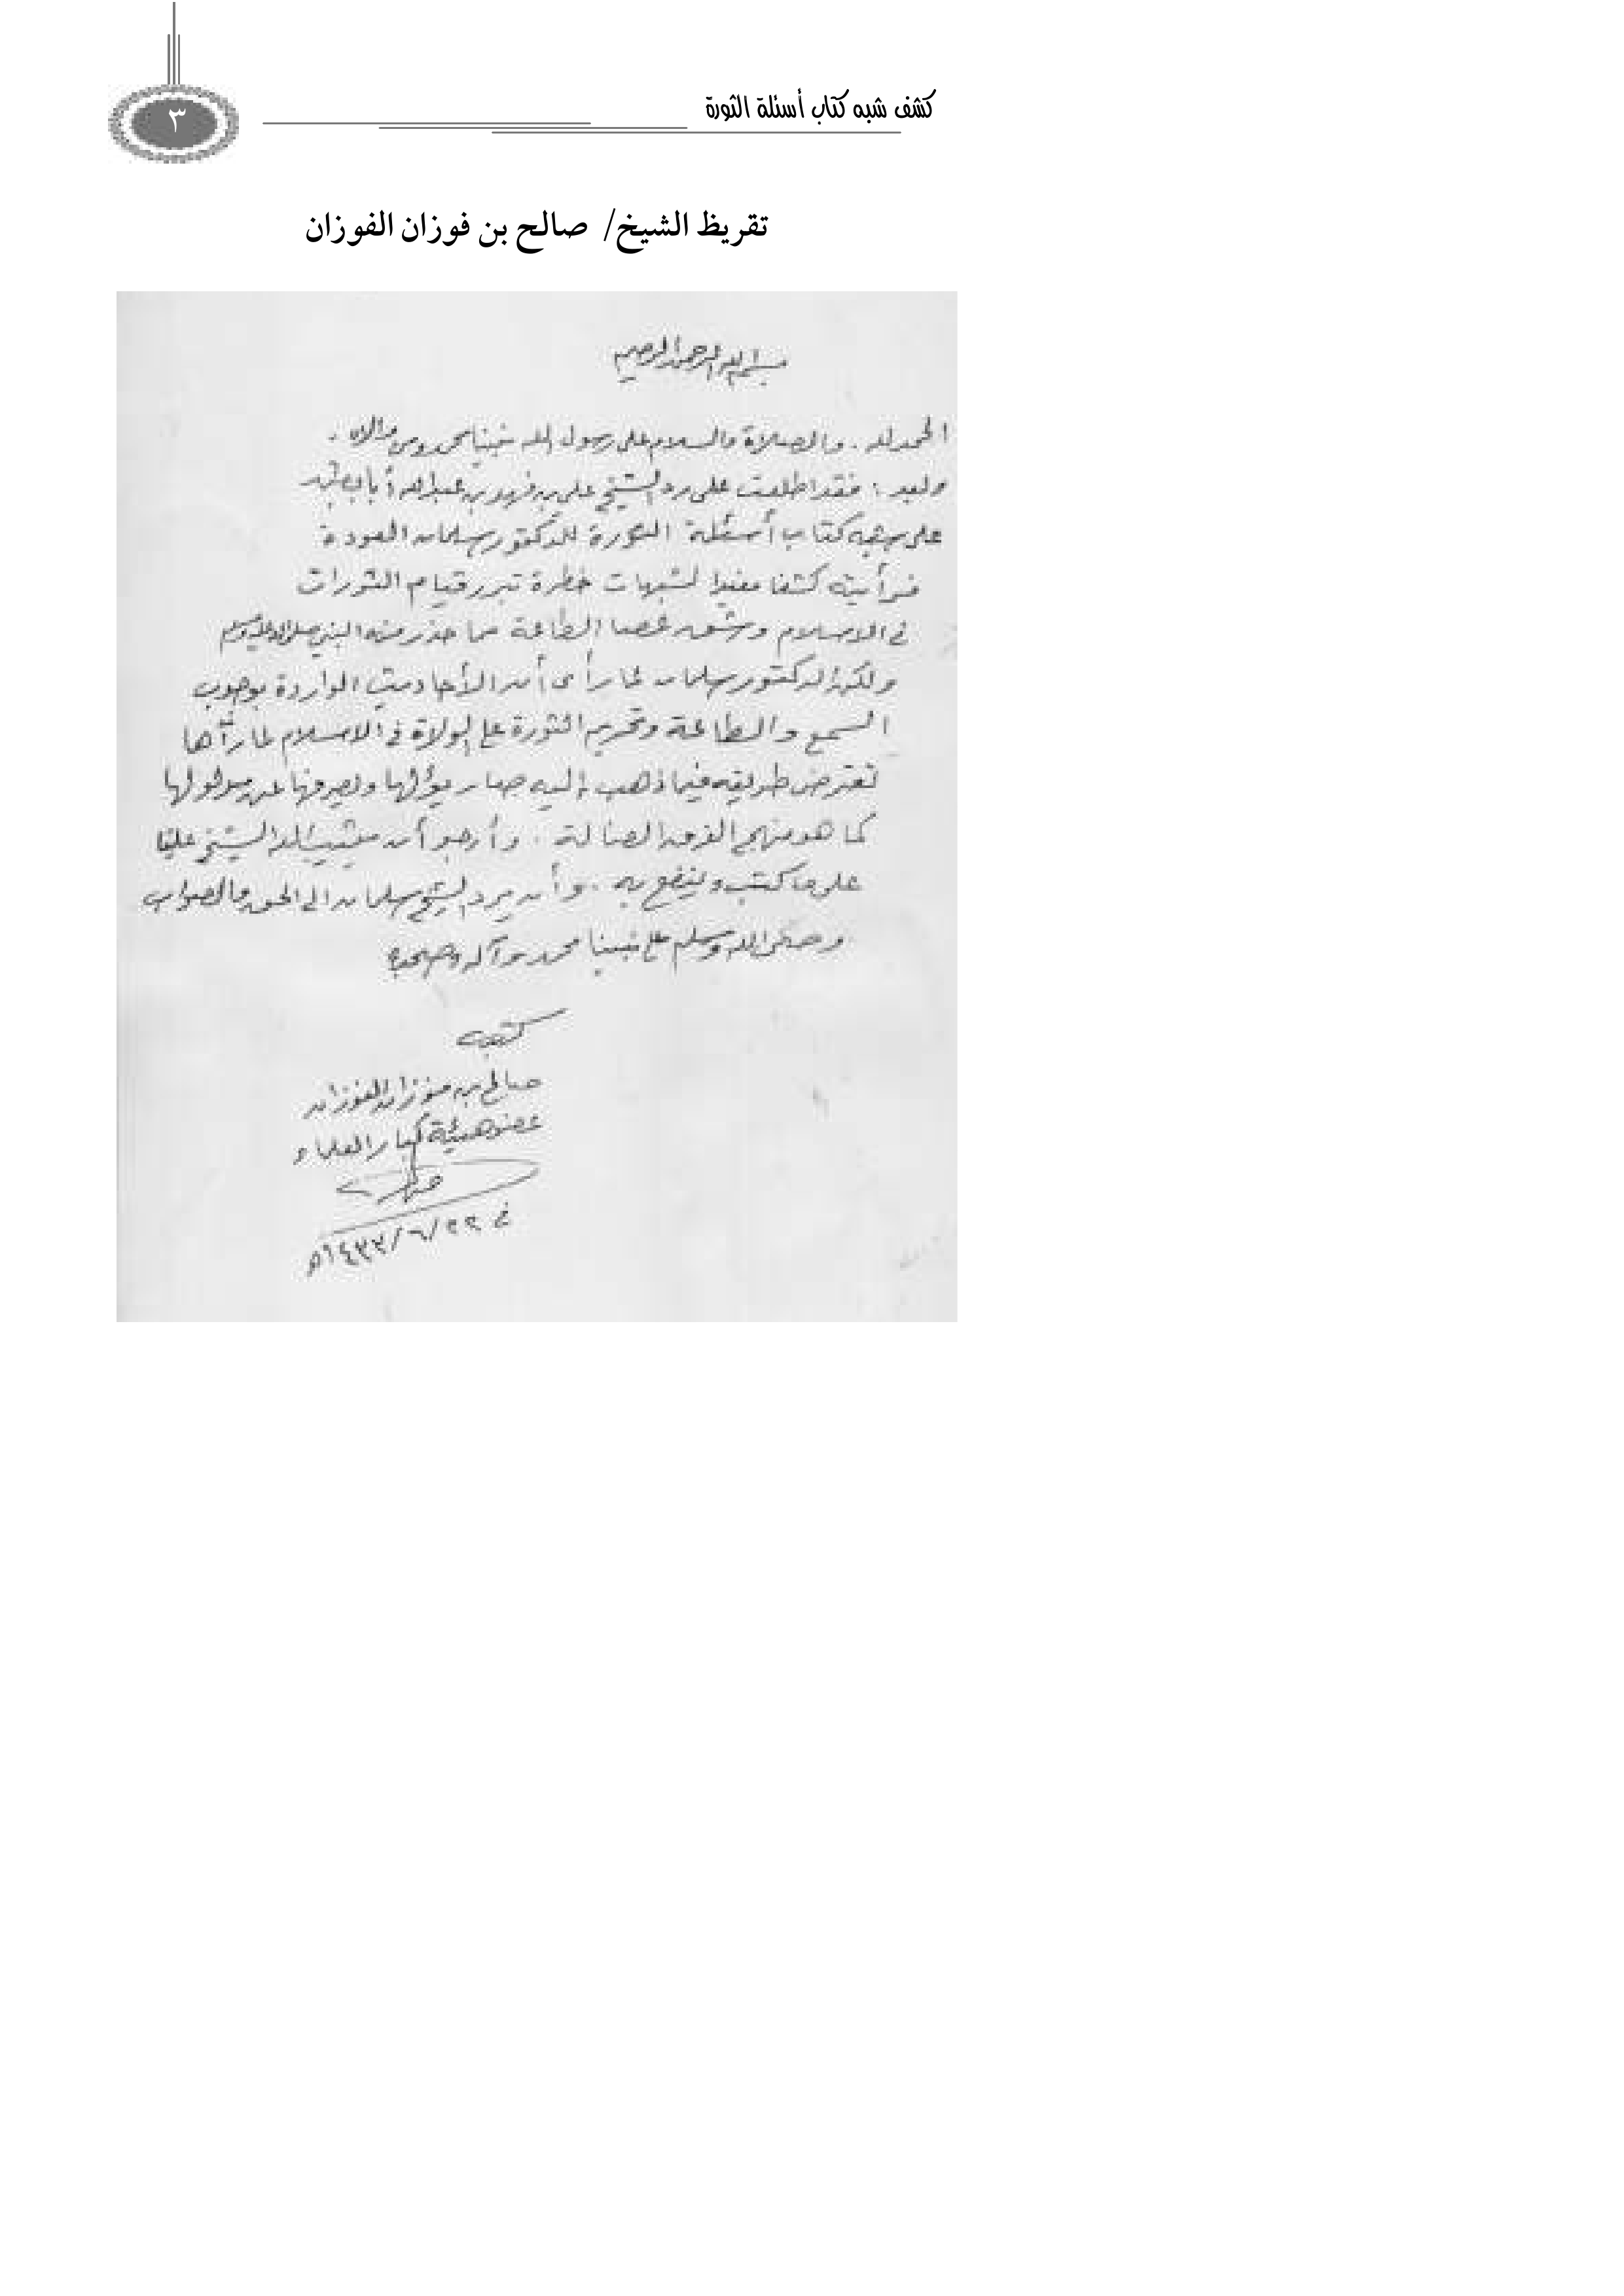 كشف شبه كتاب أسئلة الثورة
٣
تقريظ الشيخ/ صالح بن فوزان الفوزان
بسم الله الرحمن الرحيم
الحمد لله . والصلاة والسلام على رسول الله نبينا محمد ومن والاه .
وبعد : فقد اطلعت على رد الشيخ علي بن فهد بن عبدالله أبا بطين
على شبه كتاب أسئلة الثورة للدكتور سلمان العودة
فرأيته كشفا مفيدا لشبهات خطرة تبرر قيام الثورات
في الاسلام وشق عصا الطاعة مما حذر منه النبي صلى الله عليه وسلم
ولكن الدكتور سلمان لما رأى أن الأحاديث الواردة بوجوب
السمع والطاعة وتحريم الثورة على الولاة في الاسلام لما رآها
تعترض طريقه فيما ذهب إليه صار يؤولها ويصرفها عن مدلولها
كما هو منهج الفرق الضالة . وأرجو أن يثيب الله الشيخ عليا
على ما كتب وينفع به . وأن يرد الشيخ سلمان الى الحق والصواب
وصلى الله وسلم على نبينا محمد وآله وصحبه
كتبه
صالح بن فوزان الفوزان
عضو هيئة كبار العلماء
في ٢٢/٦/١٤٣٣هـ